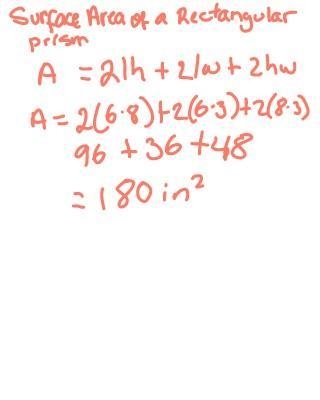 Surface Area of a Rectangular
prism
A = 2lh + 2lw + 2hw
A = 2(6·8)+2(6·3)+2(8·3)
96 + 36 + 48
= 180 in²